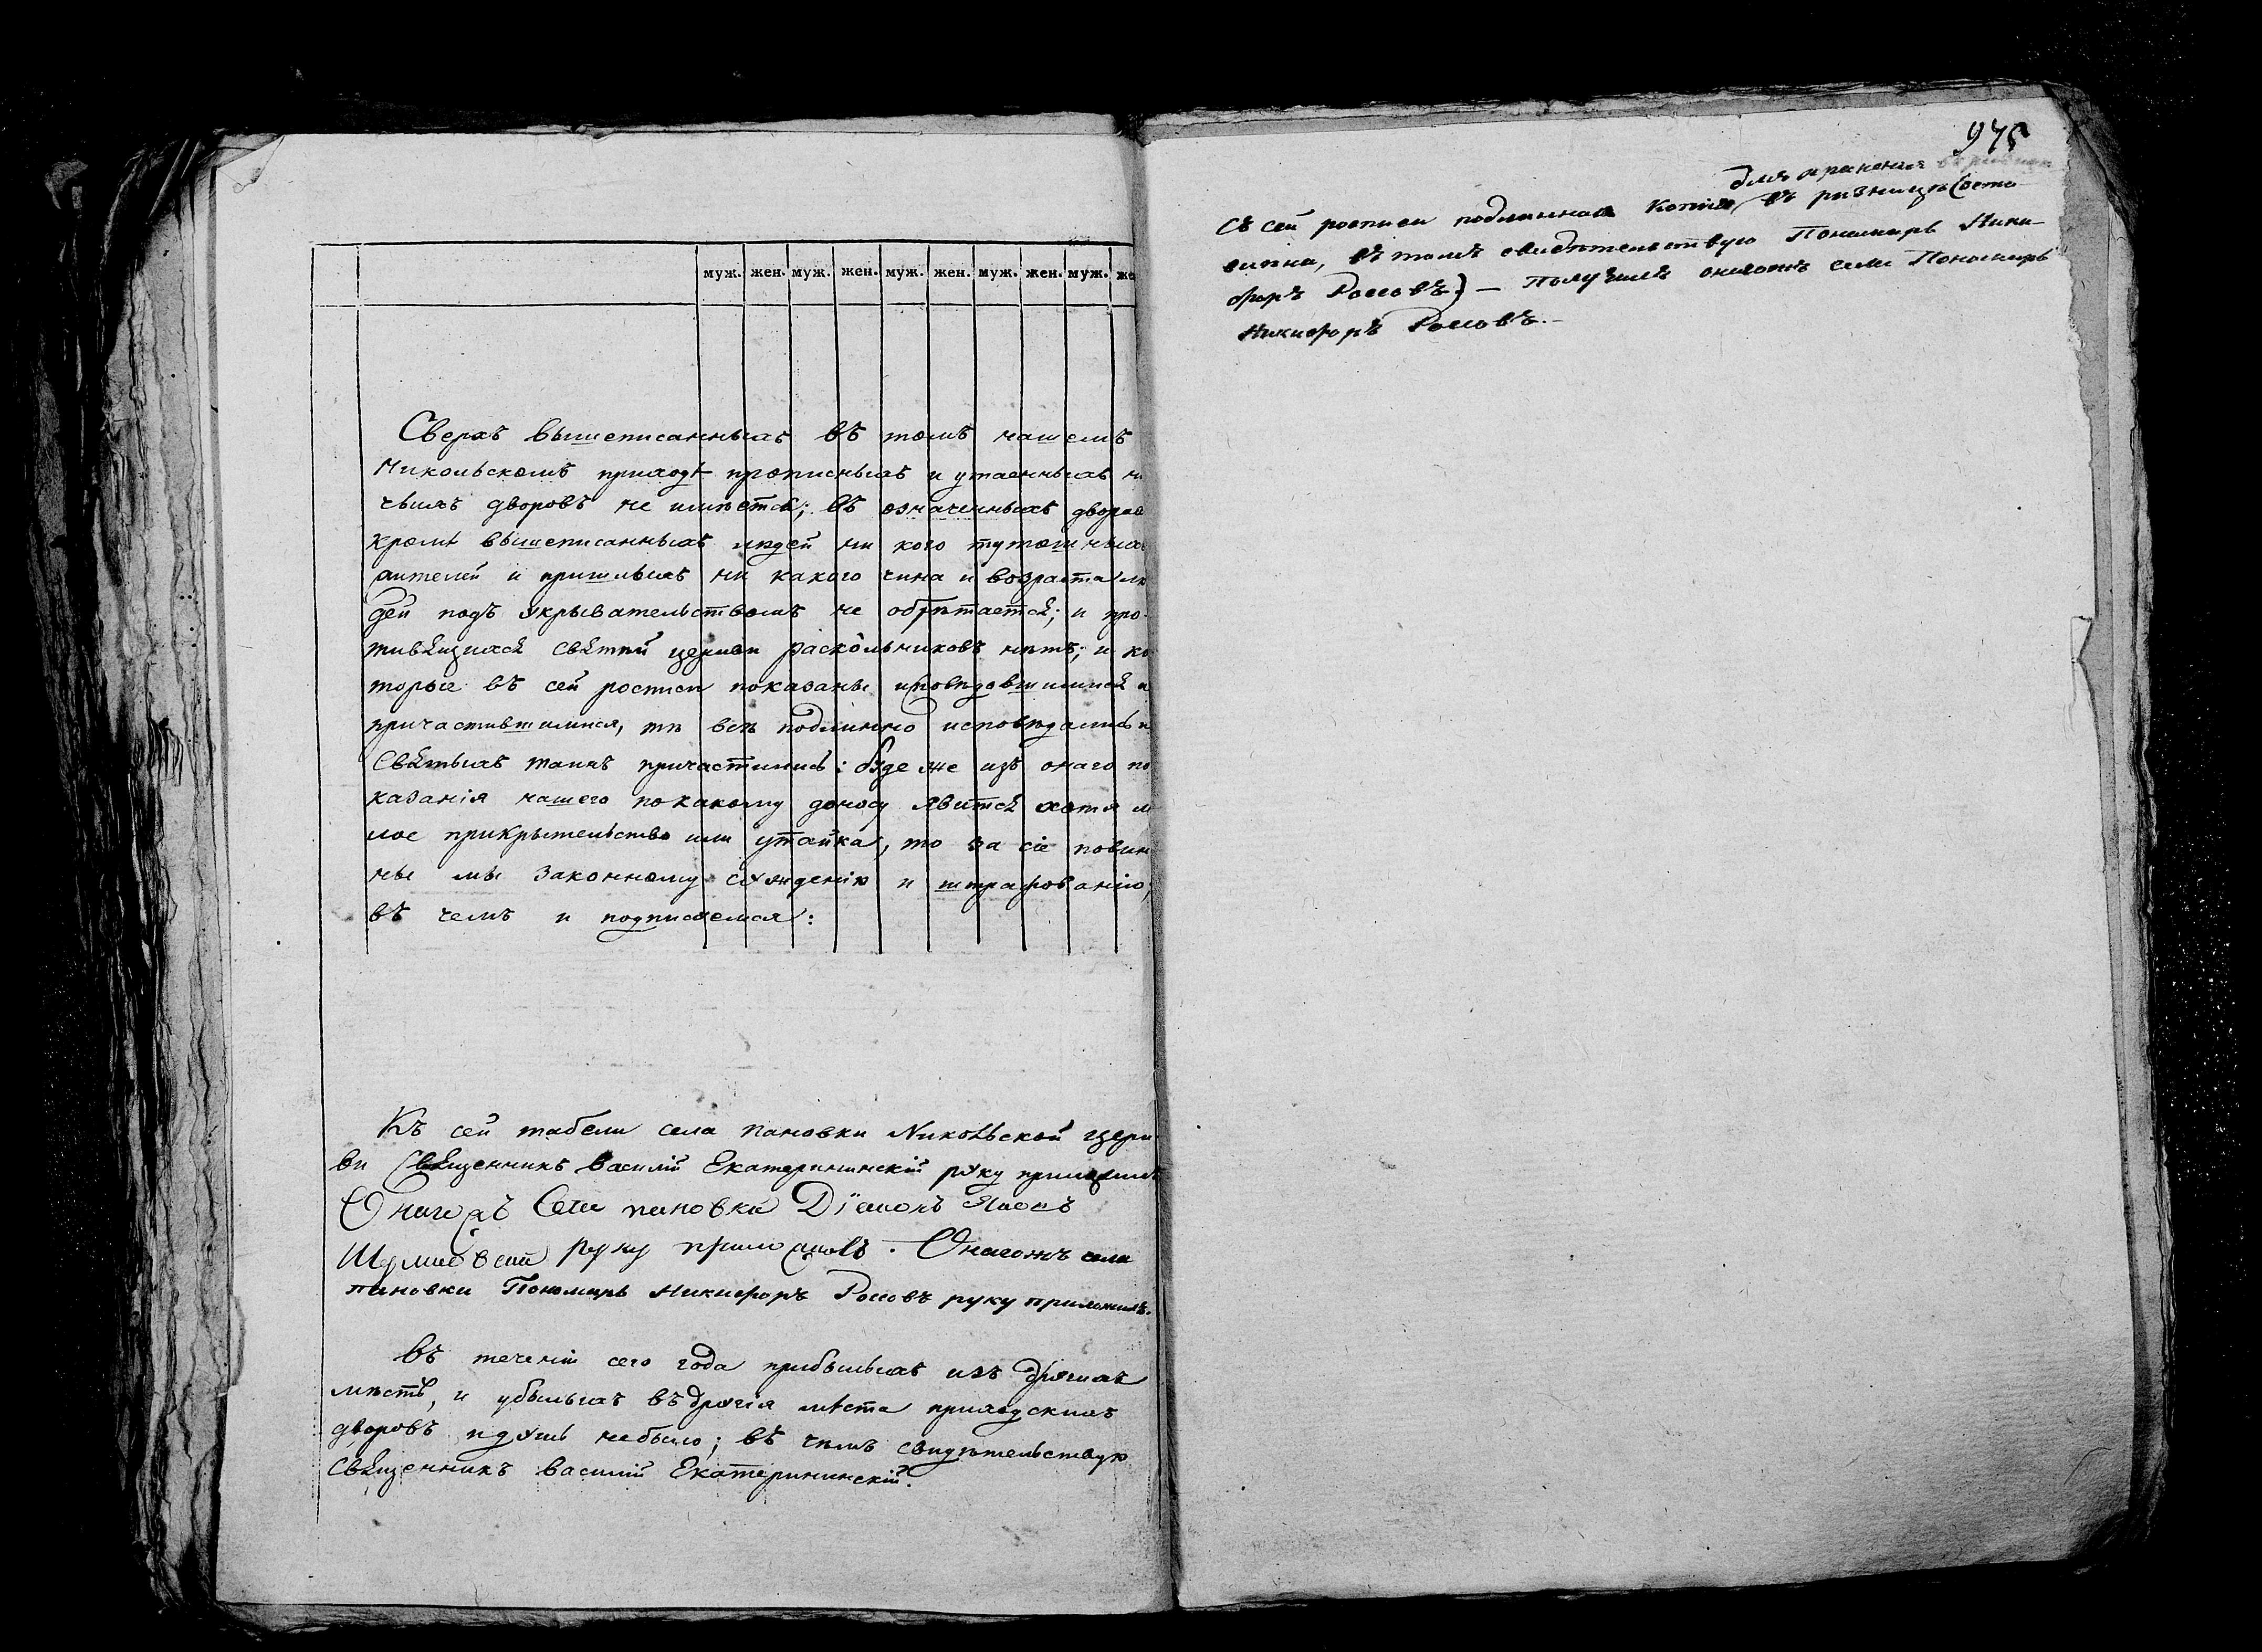 муж. жен. муж. жен. муж. жен. муж. жен. муж. же
Сверхъ вышеписанныхъ въ томъ нашемъ
Никольскомъ приходѣ прописныхъ и утаенныхъ ни
чьихъ дворовъ не имѣется; въ означенныхъ дворах
кромѣ вышеписанныхъ людей ни кого тутошныхъ
жителей и пришлыхъ ни какого чина и возраста лю
дей подъ укрывательствомъ не обрѣтается; и про-
тивящихся святой церкви раскольниковъ нѣтъ; и ко
торые въ сей росписи показаны исповѣдавшимися и
причастившимися, тѣ всѣ подлинно исповѣдались и
Святыхъ таинъ причастились: буде же изъ онаго по
казанія нашего по какому доносу явится хотя м
лое прикрытельство или утайка, то за сіе повин
ны мы законному сужденію и штрафованію;
въ чемъ и подписуемся:
Къ сей табели села Пановки Никольской церк
ви Священникъ Василій Екатерининскій руку приложилъ
Онагожъ Села пановки Діаконъ
руку приложилъ. Онагожъ села
пановки Пономарь Никифоръ Россовъ руку приложилъ.
Въ теченіи сего года прибылыхъ изъ другихъ
мѣстъ, и убылыхъ въ другія мѣста приходскихъ
дворовъ и душъ небыло; въ чемъ свидѣтельствую
Священникъ Василій Екатерининскій.
975
для храненія
Съ сей росписи подлинная Копія въ ризницѣ (оста
влена, въ томъ свидѣтельствую Пономарь Ники-
форъ Россовъ) — Получилъ онагожъ села Пономарь
Никифоръ Россовъ.—